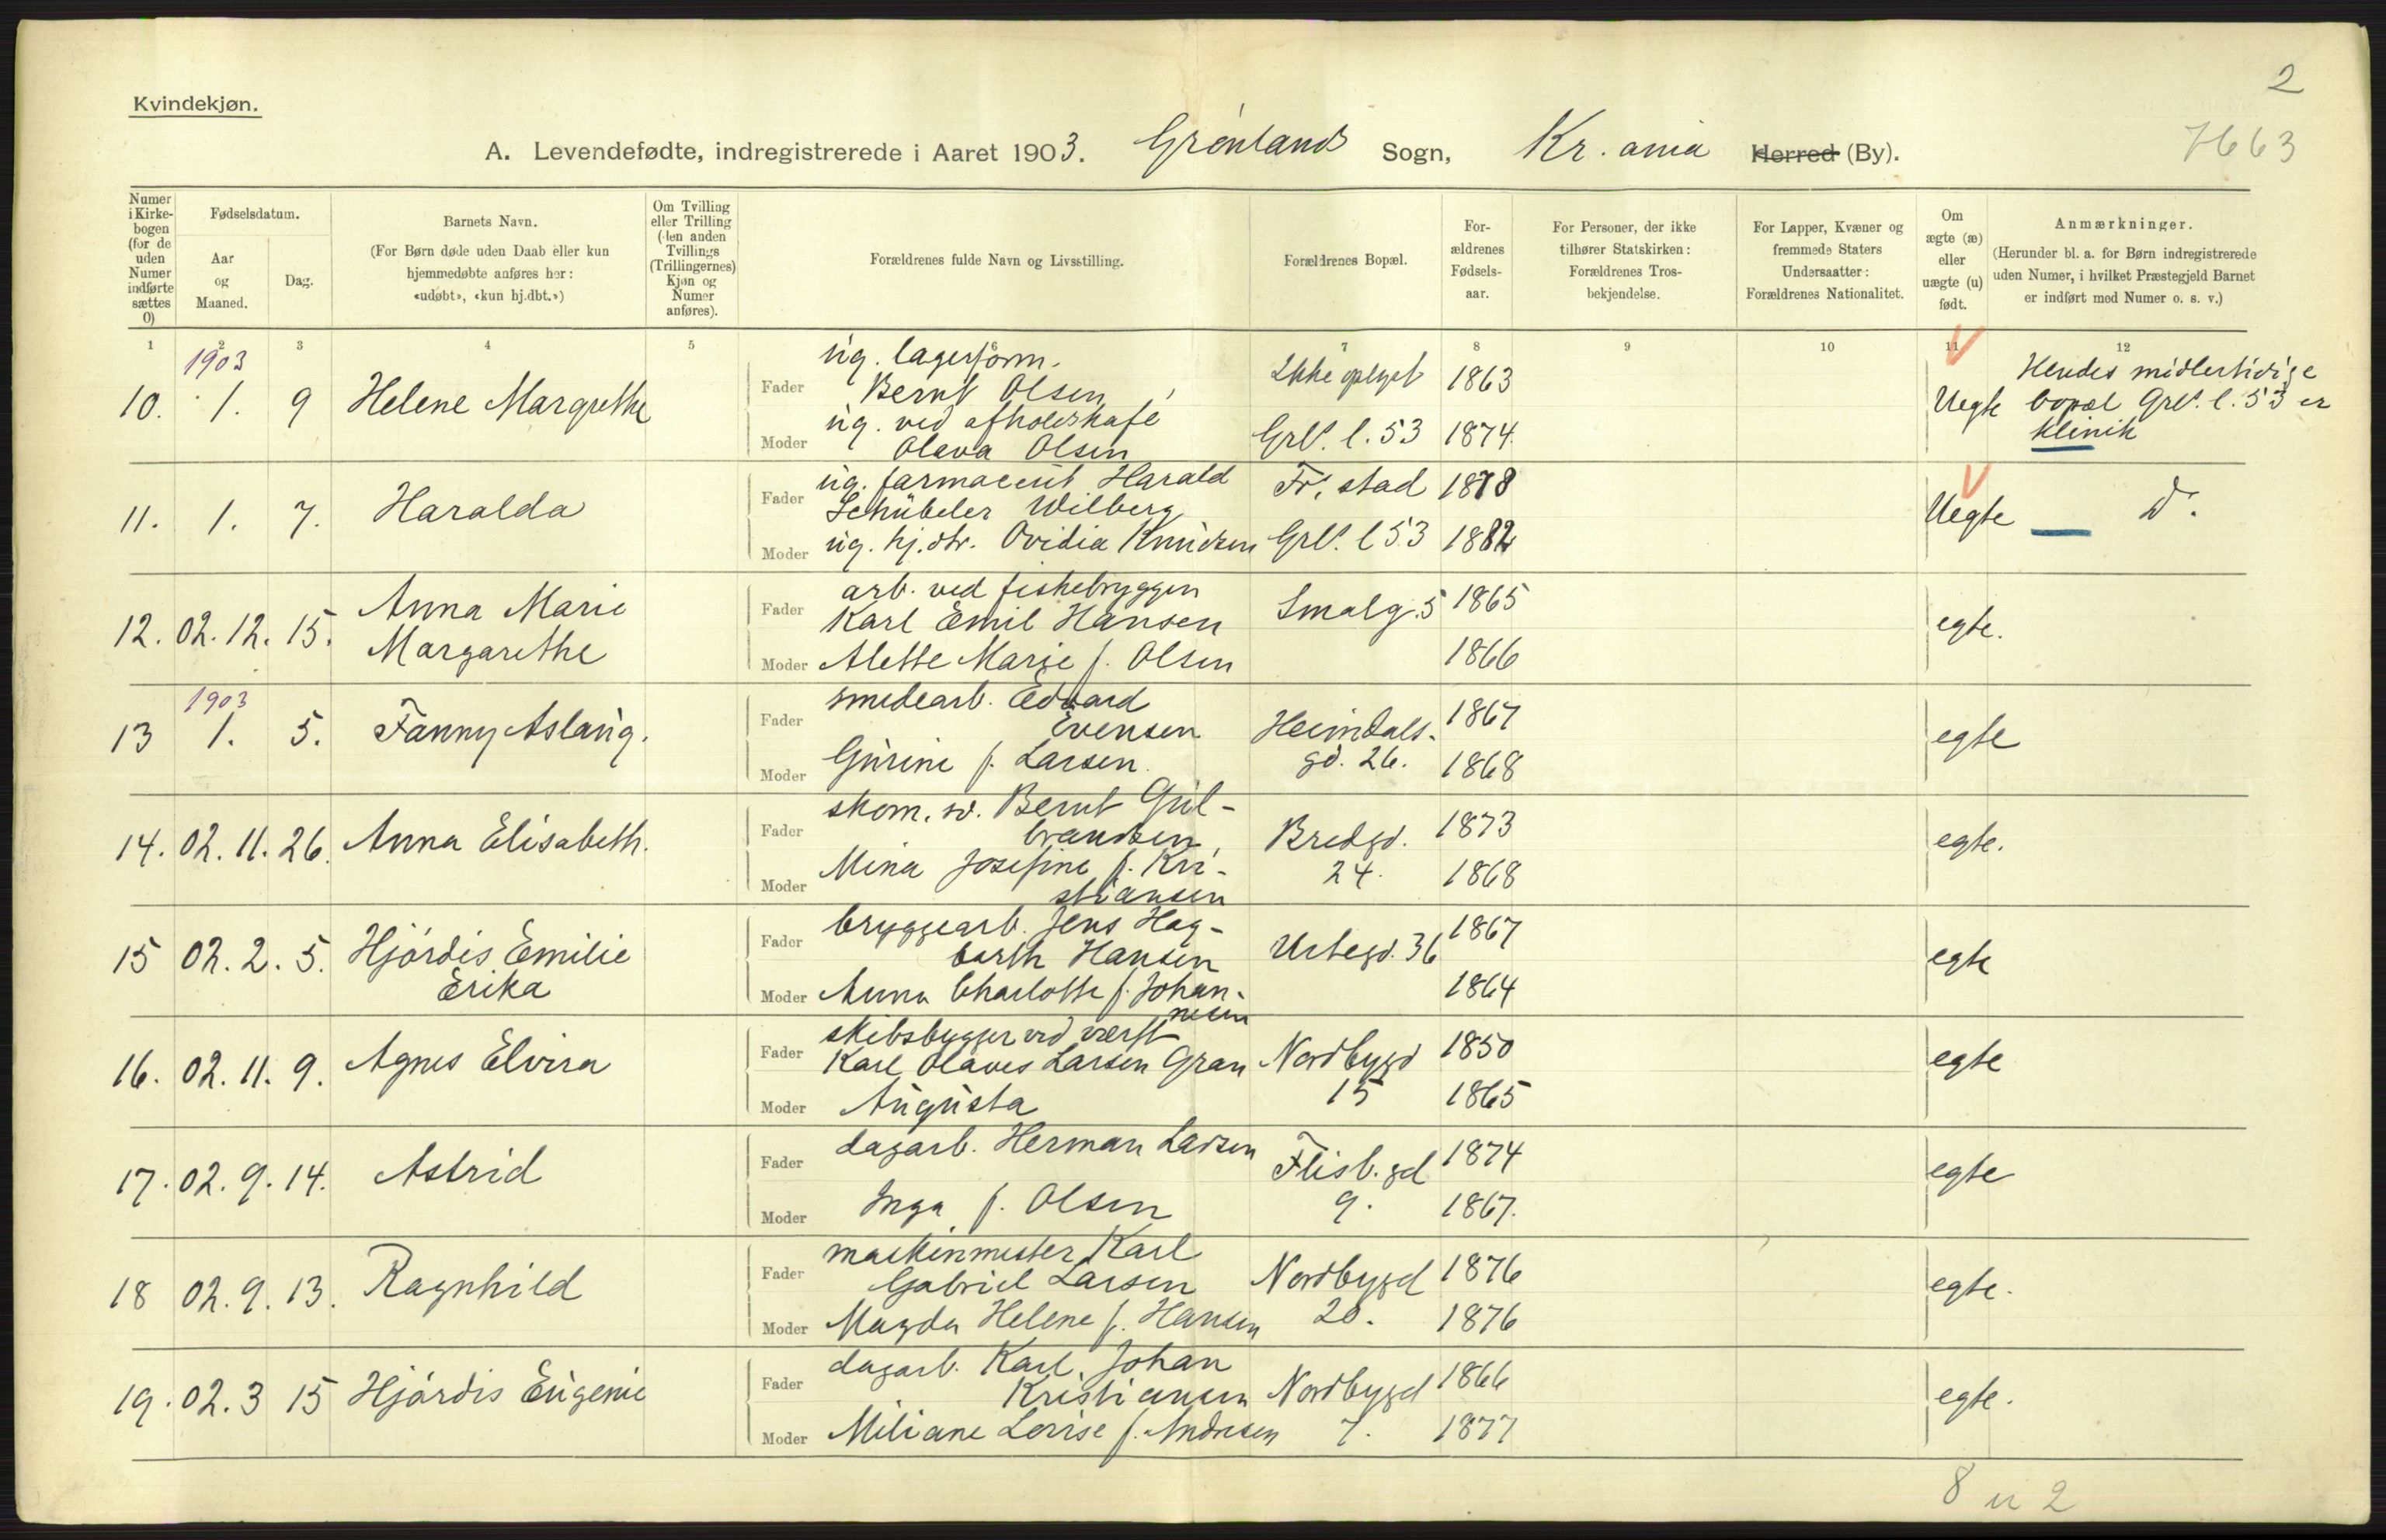 2
Kvindekjøn.
A. Levendefødte, indregistrerede i Aaret 1903. Grønlands Sogn, Kr.ania Herred (By). 7663
Numer i Kirkebogen (for de uden Numer indførte sættes 0)
Fødselsdatum.
Aar og Maaned.
Dag.
Barnets Navn.
(For Børn døde uden Daab eller kun hjemmedøbte anføres her: «udøbt», «kun hj.dbt.»)
Om Tvilling eller Trilling (den anden Tvillings (Trillingernes) Kjøn og Numer anføres).
Forældrenes fulde Navn og Livsstilling.
Forældrenes Bopæl.
Forældrenes Fødselsaar.
For Personer, der ikke tilhører Statskirken: Forældrenes Trosbekjendelse.
For Lapper, Kvæner og fremmede Staters Undersaatter: Forældrenes Nationalitet.
Om ægte (æ) eller uægte (u) født.
Anmærkninger.
(Herunder bl. a. for Børn indregistrerede uden Numer, i hvilket Præstegjeld Barnet er indført med Numer o. s. v.)
1 2 3 4 5 6 7 8 9 10 11 12
1903
10. 1. 9 Helene Margrethe
Fader ug. lagerform.
Bernt Olsen Ikke oplyst 1863
Moder ug. ved afholdskafé
Olava Olsen Grl's. l. 53 1874.
Uegte Hendes midlertidige
bopæl Grl's. l. 53 er
klinik
11. 1. 7. Haralda
Fader ug. farmaceut Harald
Schübeler Wilberg Fr.stad 1878
Moder ug. hj. dtr. Ovidia Knudsen Grl's. l 53 1882
Uegte — Do.
12. 02. 12. 15. Anna Marie
Margarethe
Fader arb. ved fiskebryggen
Karl Emil Hansen Smalg. 5 1865
Moder Alette Marie f. Olsen 1866
egte.
1903
13 1. 5. Fanny Aslaug.
Fader smedearb. Edvard
Evensen Heimdals- 1867
Moder Gurine f. Larsen. gd. 26. 1868
egte
14. 02. 11. 26. Anna Elisabeth.
Fader skom. sv. Bernt Gul-
brandsen, Bredgd. 1873
Moder Mina Josefine f. Kri-
stiansen 24. 1868
egte.
15 02. 2. 5. Hjördis Emilie
Erika
Fader bryggearb. Jens Hag-
barth Hansen Urtegd. 36 1867
Moder Anna Charlotte f. Johan-
nesen 1864
egte
16. 02. 11. 9. Agnes Elvira
Fader skibsbygger ved værft
Karl Olaves Larsen Gran Nordbygd 1850
Moder Augusta 15 1865
egte
17. 02. 9. 14. Astrid
Fader dagarb. Herman Larsen Flisb. gd 1874
Moder Inga f. Olsen 9. 1867.
egte
18 02. 9. 13. Ragnhild
Fader maskinmester Karl
Gabriel Larsen Nordbygd 1876
Moder Magda Helene f. Hansen 20. 1876
egte.
19. 02. 3 15 Hjördis Eugenie
Fader dagarb. Karl Johan
Kristiansen Nordbygd 1866
Moder Miliane Lovise f. Andresen 7. 1877
egte.
8 u 2